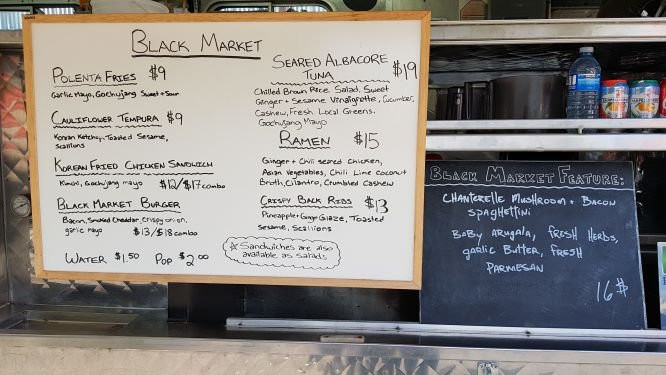 BLACK MARKET
POLENTA FRIES $9
Garlic Mayo, Gochujang Sweet + Sour
CAULIFLOWER TEMPURA $9
Korean Ketchup, Toasted Sesame,
Scallions
KOREAN FRIED CHICKEN SANDWICH
Kimchi, Gochujang mayo $12/$17 combo
BLACK MARKET BURGER
Bacon, Smoked Cheddar, Crispy onion,
garlic mayo $13/$18 combo
WATER $1.50 POP $2.00
SEARED ALBACORE
TUNA $19
Chilled Brown Rice Salad, Sweet
Ginger + Sesame Vinaigrette, Cucumber,
Cashew, Fresh Local Greens,
Gochujang Mayo
RAMEN $15
Ginger + Chili seared Chicken,
Asian Vegetables, Chili Lime Coconut
Broth, Cilantro, Crumbled Cashew
CRISPY BACK RIBS $13
Pineapple + Ginger Glaze, Toasted
Sesame, Scallions
Sandwiches are also
available as salads
BLACK MARKET FEATURE:
CHANTERELLE MUSHROOM + BACON
SPAGHETTINI
BABY ARUGALA, FRESH HERBS,
garlic BUTTER, FRESH
PARMESAN
16$